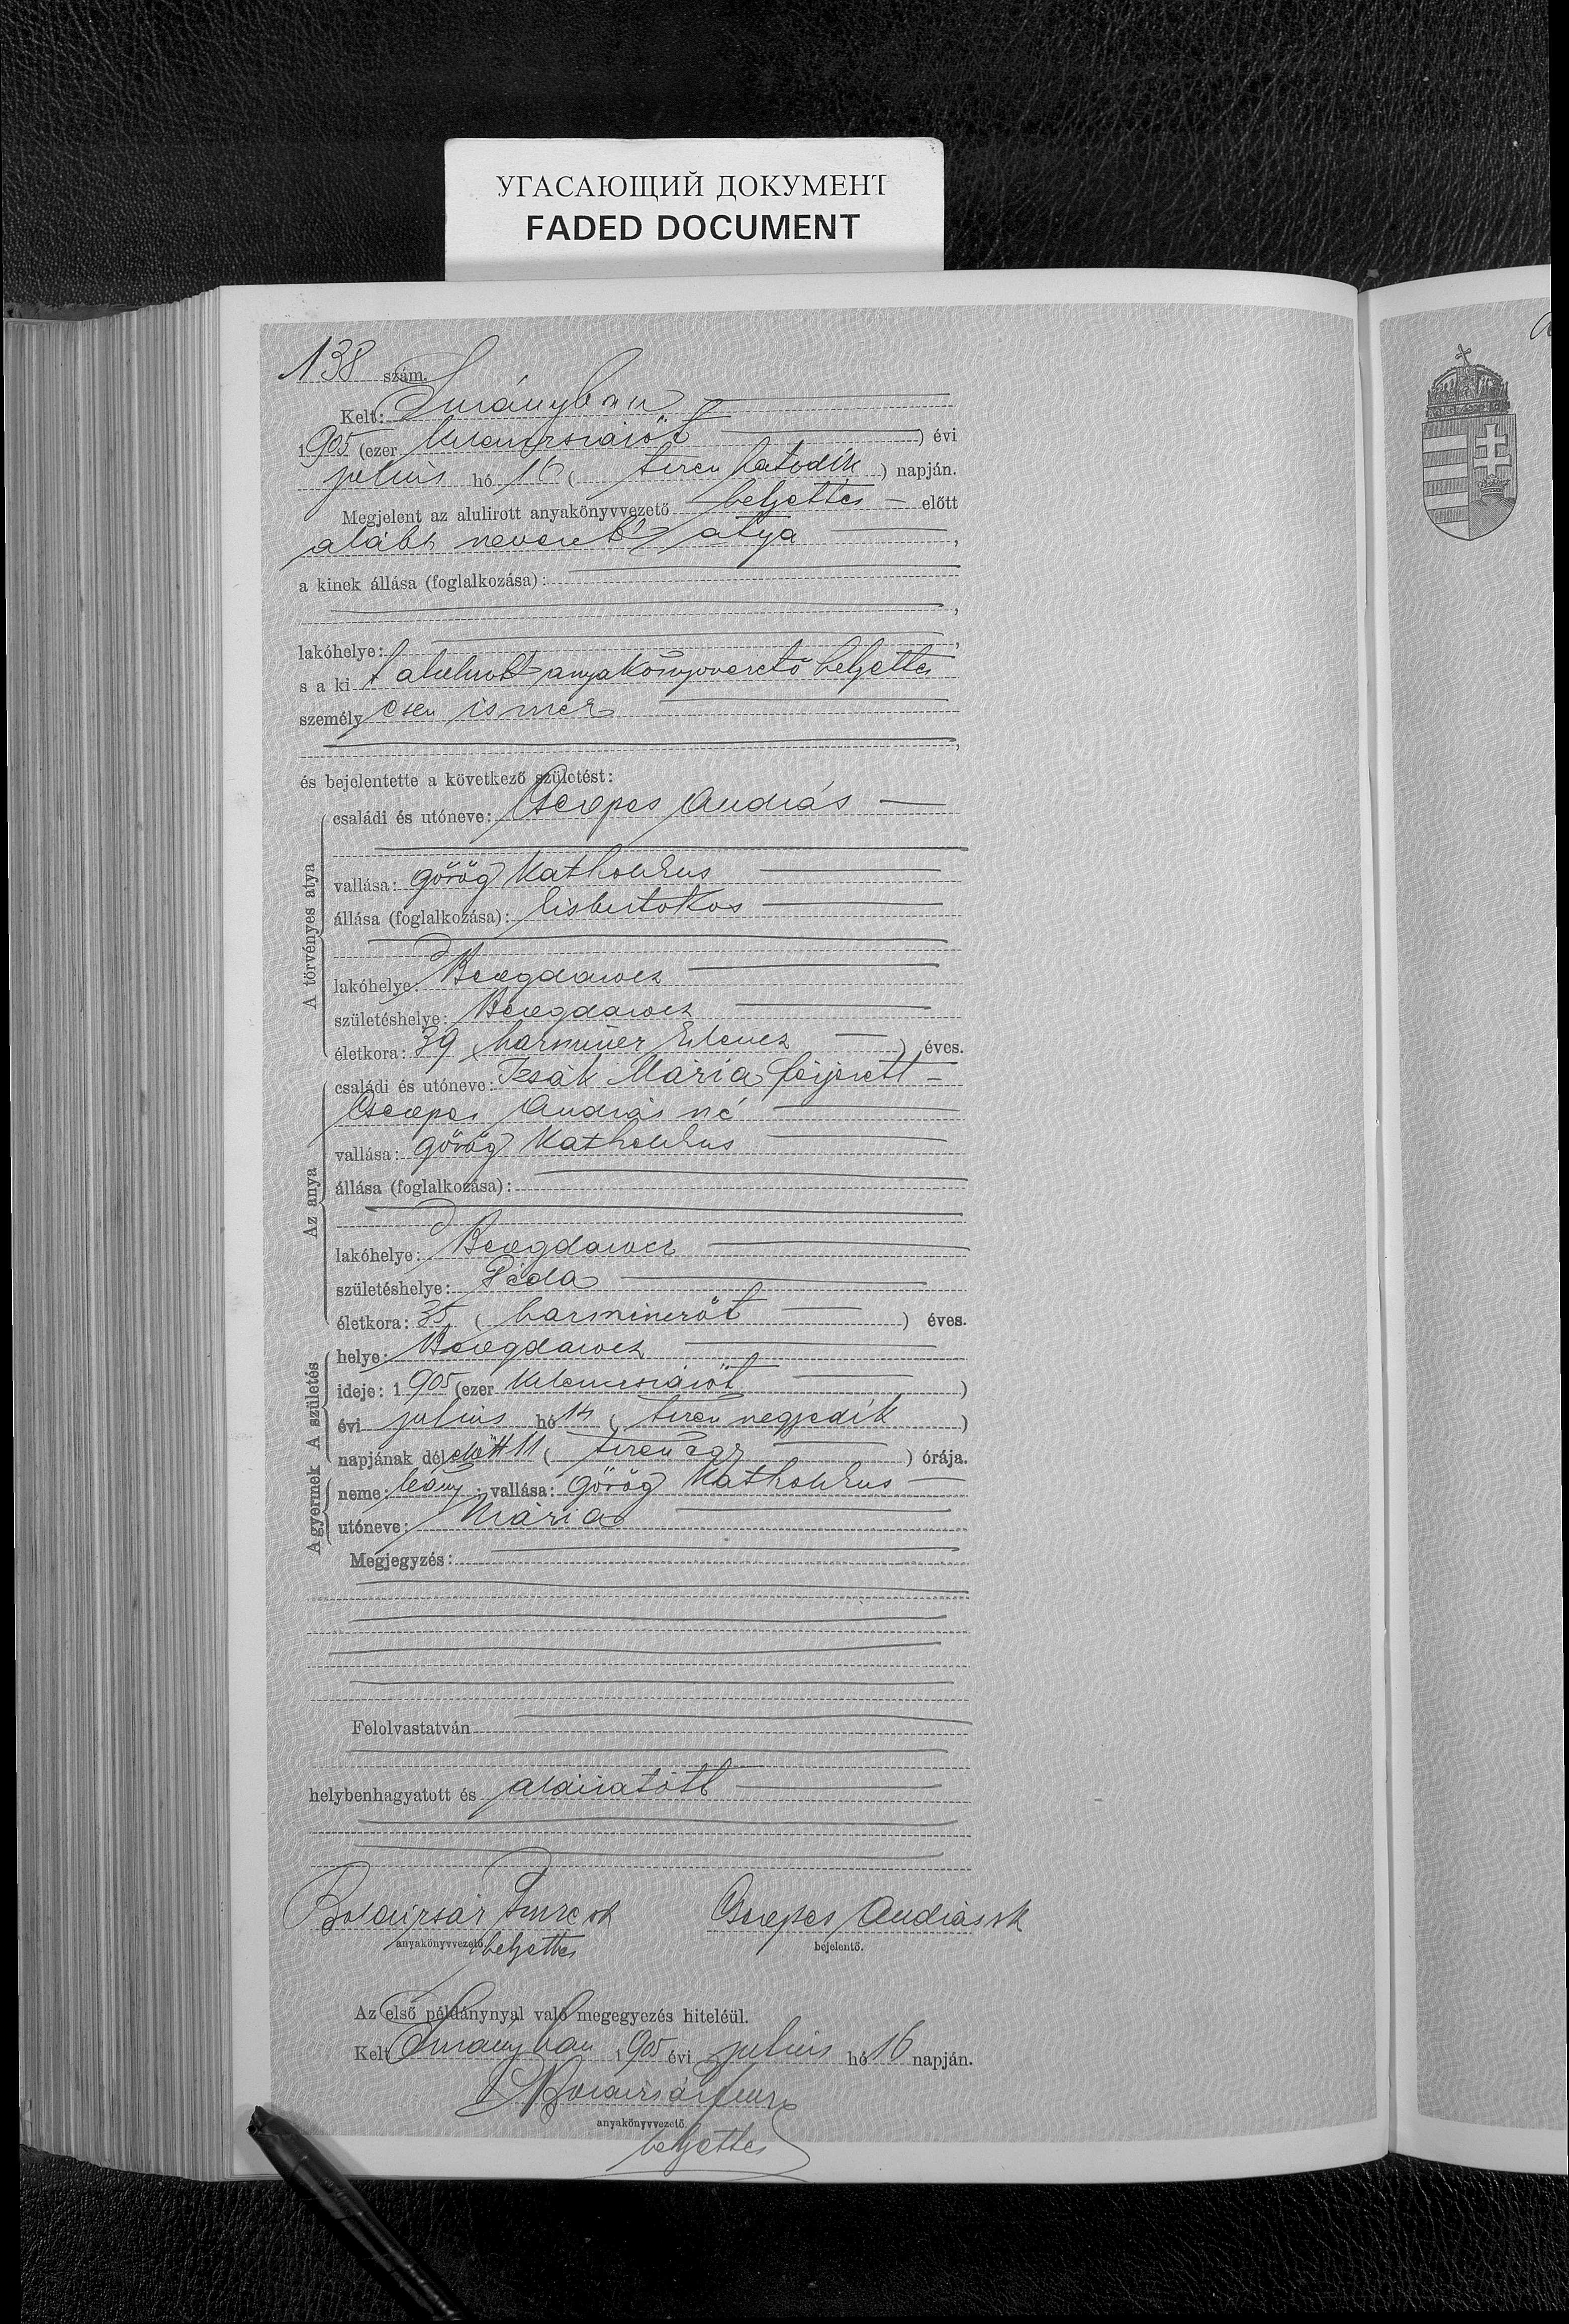 УГАСАЮЩИЙ ДОКУМЕНТ
FADED DOCUMENT
138 szám.
Kelt: Surányban
1905 (ezer kilenczszázöt) évi
julius hó 16 (tizenhatodik) napján.
Megjelent az alulirott anyakönyvvezető helyettes előtt
alább nevezett atya,
a kinek állása (foglalkozása):
lakóhelye:
s a ki t alulirott anyakönyvvezető helyettes
személyesen ismer
és bejelentette a következő születést:
A törvényes atya
családi és utóneve: Cserepes András
vallása: görög katholikus
állása (foglalkozása): kisbirtokos
lakóhelye: Beregdarócz
születéshelye: Beregdarócz
életkora: 39 (harminczkilencz) éves.
Az anya
családi és utóneve: Izsák Mária férjezett
Cserepes Andrásné
vallása: görög katholikus
állása (foglalkozása):
lakóhelye: Beregdarócz
születéshelye:
életkora: 35 (harminczöt) éves.
A születés
helye: Beregdarócz
ideje: 1905 (ezer kilenczszázöt)
évi julius hó 14 (tizennegyedik)
napjának délelőtt 11 (tizenegy) órája.
A gyermek
neme: leány; vallása: görög katholikus
utóneve: Mária
Megjegyzés:
Felolvastatván
helybenhagyatott és aláiratott
Imre sk Cserepes András sk
anyakönyvvezető helyettes bejelentő.
Az első példánynyal való megegyezés hiteléül.
Kelt Surányban 1905 évi julius hó 16 napján.
anyakönyvvezető
helyettes